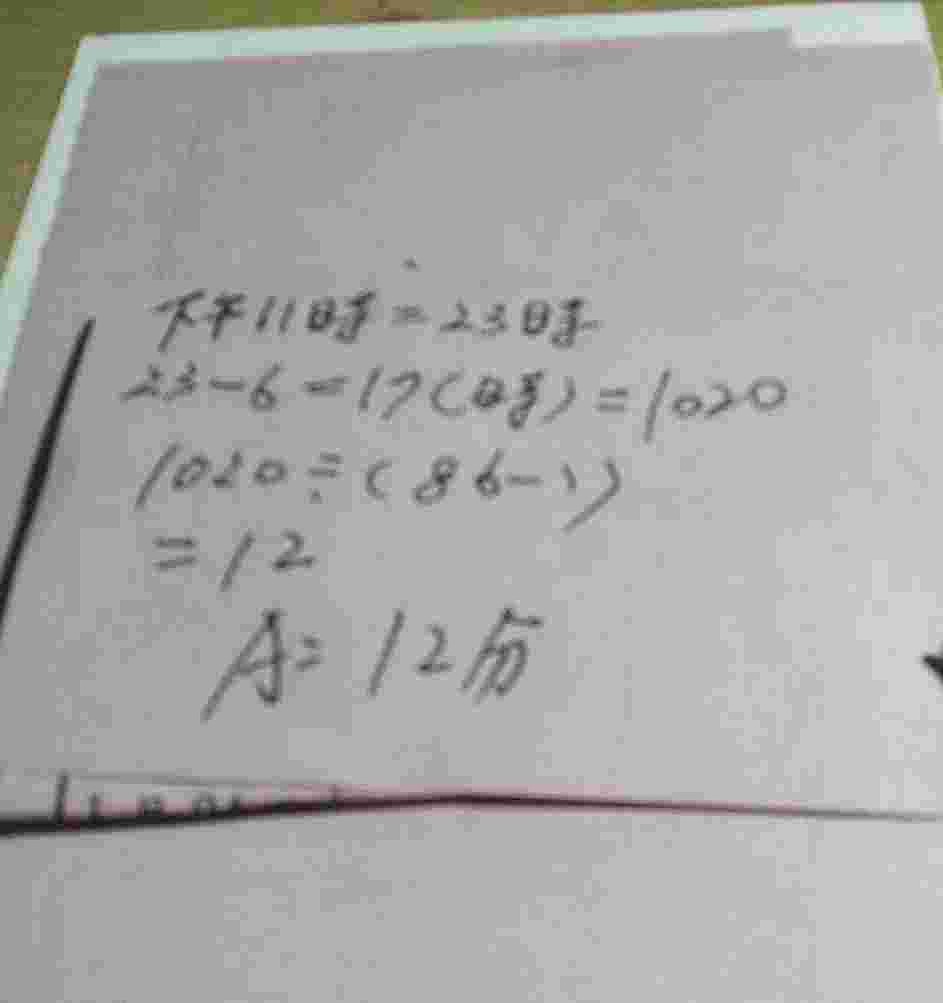 下午11時=23時
23-6=17(時)=1020
1020÷(86-1)
=12
A=12分